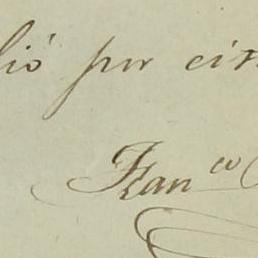 lió por cin
Fran.co